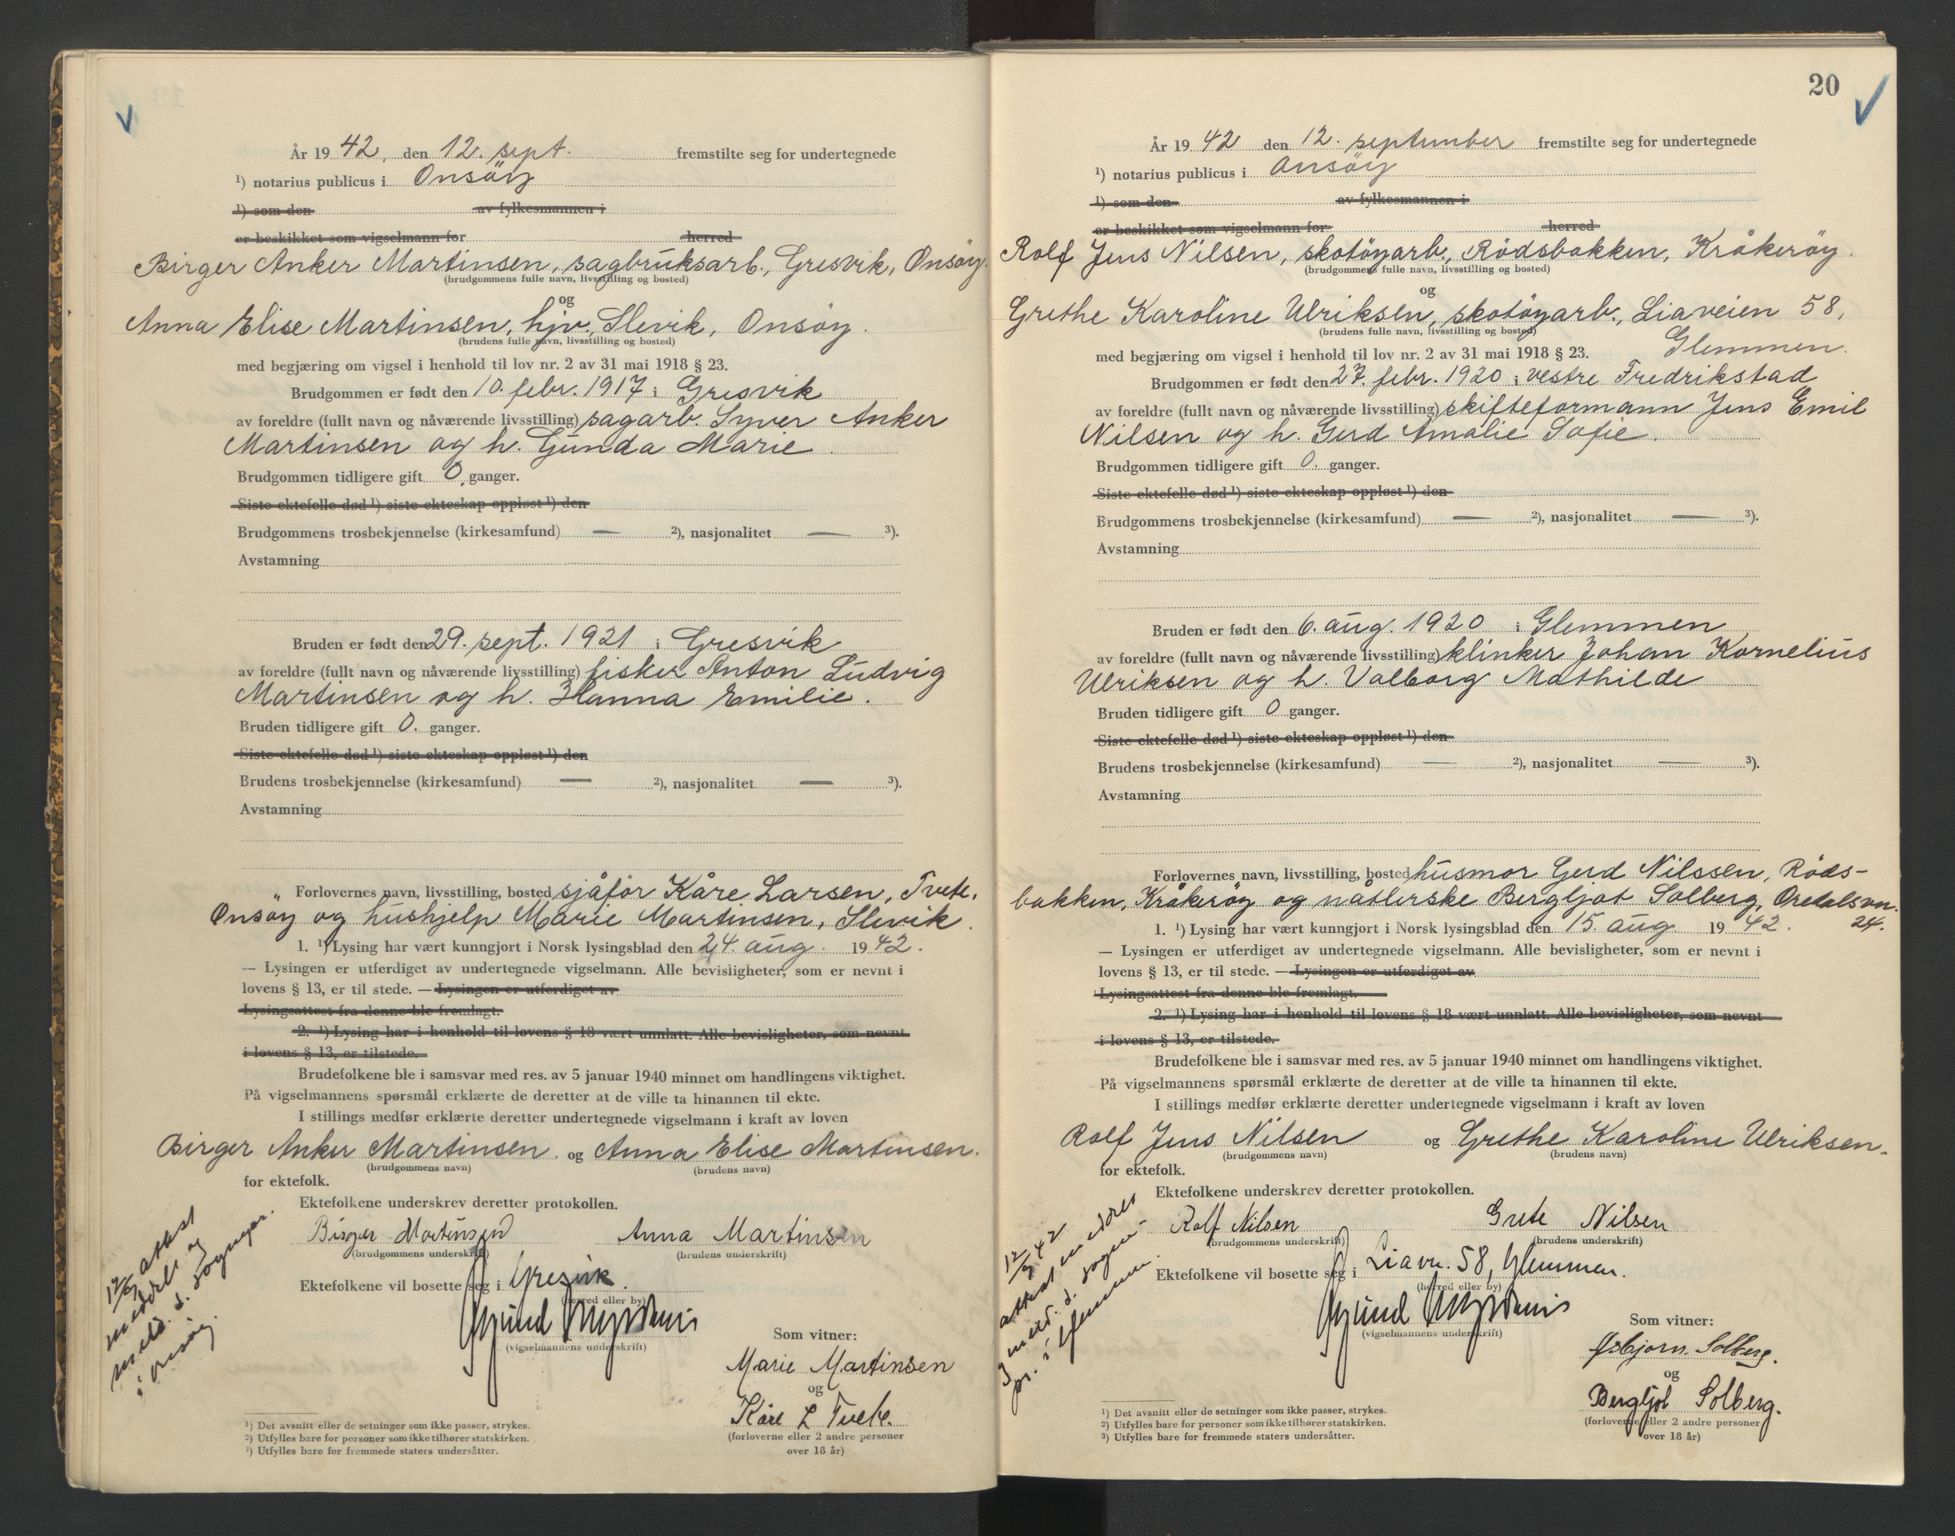 År 19 42, den 12. sept. fremstilte seg for undertegnede
¹) notarius publicus i Onsöy
¹) som den av fylkesmannen i
er beskikket som vigselmann for herred
Birger Anker Martinsen, sagbruksarb., Gresvik, Onsöy.
(brudgommens fulle navn, livsstilling og bosted)
og
Anna Elise Martinsen, hjv., Slevik, Onsöy.
(brudens fulle navn, livsstilling og bosted)
med begjæring om vigsel i henhold til lov nr. 2 av 31 mai 1918 § 23.
Brudgommen er født den 10. febr. 1917 i Gresvik
av foreldre (fullt navn og nåværende livsstilling) sagarb. Syver Anker
Martinsen og h. Gunda Marie.
Brudgommen tidligere gift 0. ganger.
Siste ektefelle død ¹) siste ekteskap oppløst ¹) den
Brudgommens trosbekjennelse (kirkesamfund) — ²), nasjonalitet — ³).
Avstamning
Bruden er født den 29. sept. 1921 i Gresvik
av foreldre (fullt navn og nåværende livsstilling) fisker Anton Ludvig
Martinsen og h. Hanna Emilie.
Bruden tidligere gift 0. ganger.
Siste ektefelle død ¹) siste ekteskap oppløst ¹) den
Brudens trosbekjennelse (kirkesamfund) — ²), nasjonalitet — ³).
Avstamning
Forlovernes navn, livsstilling, bosted sjåför Kåre Larsen, Tvete,
Onsöy og hushjelp Marie Martinsen, Slevik.
1. ¹) Lysing har vært kunngjort i Norsk lysingsblad den 24. aug. 19 42.
— Lysingen er utferdiget av undertegnede vigselmann. Alle bevisligheter, som er nevnt i
lovens § 13, er til stede. — Lysingen er utferdiget av
Lysingsattest fra denne ble fremlagt.
2. ¹) Lysing har i henhold til lovens § 18 vært unnlatt. Alle bevisligheter, som nevnt
i lovens § 13, er tilstede.
Brudefolkene ble i samsvar med res. av 5 januar 1940 minnet om handlingens viktighet.
På vigselmannens spørsmål erklærte de deretter at de ville ta hinannen til ekte.
I stillings medfør erklærte deretter undertegnede vigselmann i kraft av loven
Birger Anker Martinsen og Anna Elise Martinsen.
(brudgommens navn) (brudens navn)
for ektefolk.
Ektefolkene underskrev deretter protokollen.
Birger Martinsen Anna Martinsen
(brudgommens underskrift) (brudens underskrift)
Ektefolkene vil bosette seg i Gresvik.
(herred eller by)
(vigselmannens underskrift)
Som vitner:
Marie Martinsen
og
Kåre L Tvete.
(forloverne eller 2 andre personer
over 18 år)
12/9 attest
meddelt og
meld. s. sognepr.
i Onsöy.
¹) Det avsnitt eller de setninger som ikke passer, strykes.
²) Utfylles bare for personer som ikke tilhører statskirken.
³) Utfylles bare for fremmede staters undersåtter.
20
År 19 42 den 12. september fremstilte seg for undertegnede
¹) notarius publicus i Onsöy
¹) som den av fylkesmannen i
er beskikket som vigselmann for herred
Rolf Jens Nilsen, skotöyarb., Rödsbakken, Kråkeröy.
(brudgommens fulle navn, livsstilling og bosted)
og
Grethe Karoline Ulriksen, skotöyarb., Liaveien 58,
(brudens fulle navn, livsstilling og bosted)
Glemmen.
med begjæring om vigsel i henhold til lov nr. 2 av 31 mai 1918 § 23.
Brudgommen er født den 27. febr. 1920 i vestre Fredrikstad
av foreldre (fullt navn og nåværende livsstilling) skifteformann Jens Emil
Nilsen og h. Gerd Amalie Sofie.
Brudgommen tidligere gift 0. ganger.
Siste ektefelle død ¹) siste ekteskap oppløst ¹) den
Brudgommens trosbekjennelse (kirkesamfund) — ²), nasjonalitet — ³).
Avstamning
Bruden er født den 6. aug. 1920 i Glemmen
av foreldre (fullt navn og nåværende livsstilling) klinker Johan Kornelius
Ulriksen og h. Valborg Mathilde
Bruden tidligere gift 0 ganger.
Siste ektefelle død ¹) siste ekteskap oppløst ¹) den
Brudens trosbekjennelse (kirkesamfund) — ²), nasjonalitet — ³).
Avstamning
Forlovernes navn, livsstilling, bosted husmor Gerd Nilssen, Röds-
bakken, Kråkeröy og nåtlerske Bergljot Solberg, Oredalsvn.
24.
1. ¹) Lysing har vært kunngjort i Norsk lysingsblad den 15. aug 19 42.
— Lysingen er utferdiget av undertegnede vigselmann. Alle bevisligheter, som er nevnt i
lovens § 13, er til stede. — Lysingen er utferdiget av
Lysingsattest fra denne ble fremlagt.
2. ¹) Lysing har i henhold til lovens § 18 vært unnlatt. Alle bevisligheter, som nevnt
i lovens § 13, er tilstede.
Brudefolkene ble i samsvar med res. av 5 januar 1940 minnet om handlingens viktighet.
På vigselmannens spørsmål erklærte de deretter at de ville ta hinannen til ekte.
I stillings medfør erklærte deretter undertegnede vigselmann i kraft av loven
Rolf Jens Nilsen og Grethe Karoline Ulriksen.
(brudgommens navn) (brudens navn)
for ektefolk.
Ektefolkene underskrev deretter protokollen.
Rolf Nilsen Grete Nilsen
(brudgommens underskrift) (brudens underskrift)
Ektefolkene vil bosette seg i Liavn. 58, Glemmen.
(herred eller by)
(vigselmannens underskrift)
Som vitner:
Asbjørn Solberg.
og
Bergljot Solberg.
(forloverne eller 2 andre personer
over 18 år)
12/9 42
attest meddelt
meld. s. sogne-
pr. i Glemmen.
¹) Det avsnitt eller de setninger som ikke passer, strykes.
²) Utfylles bare for personer som ikke tilhører statskirken.
³) Utfylles bare for fremmede staters undersåtter.